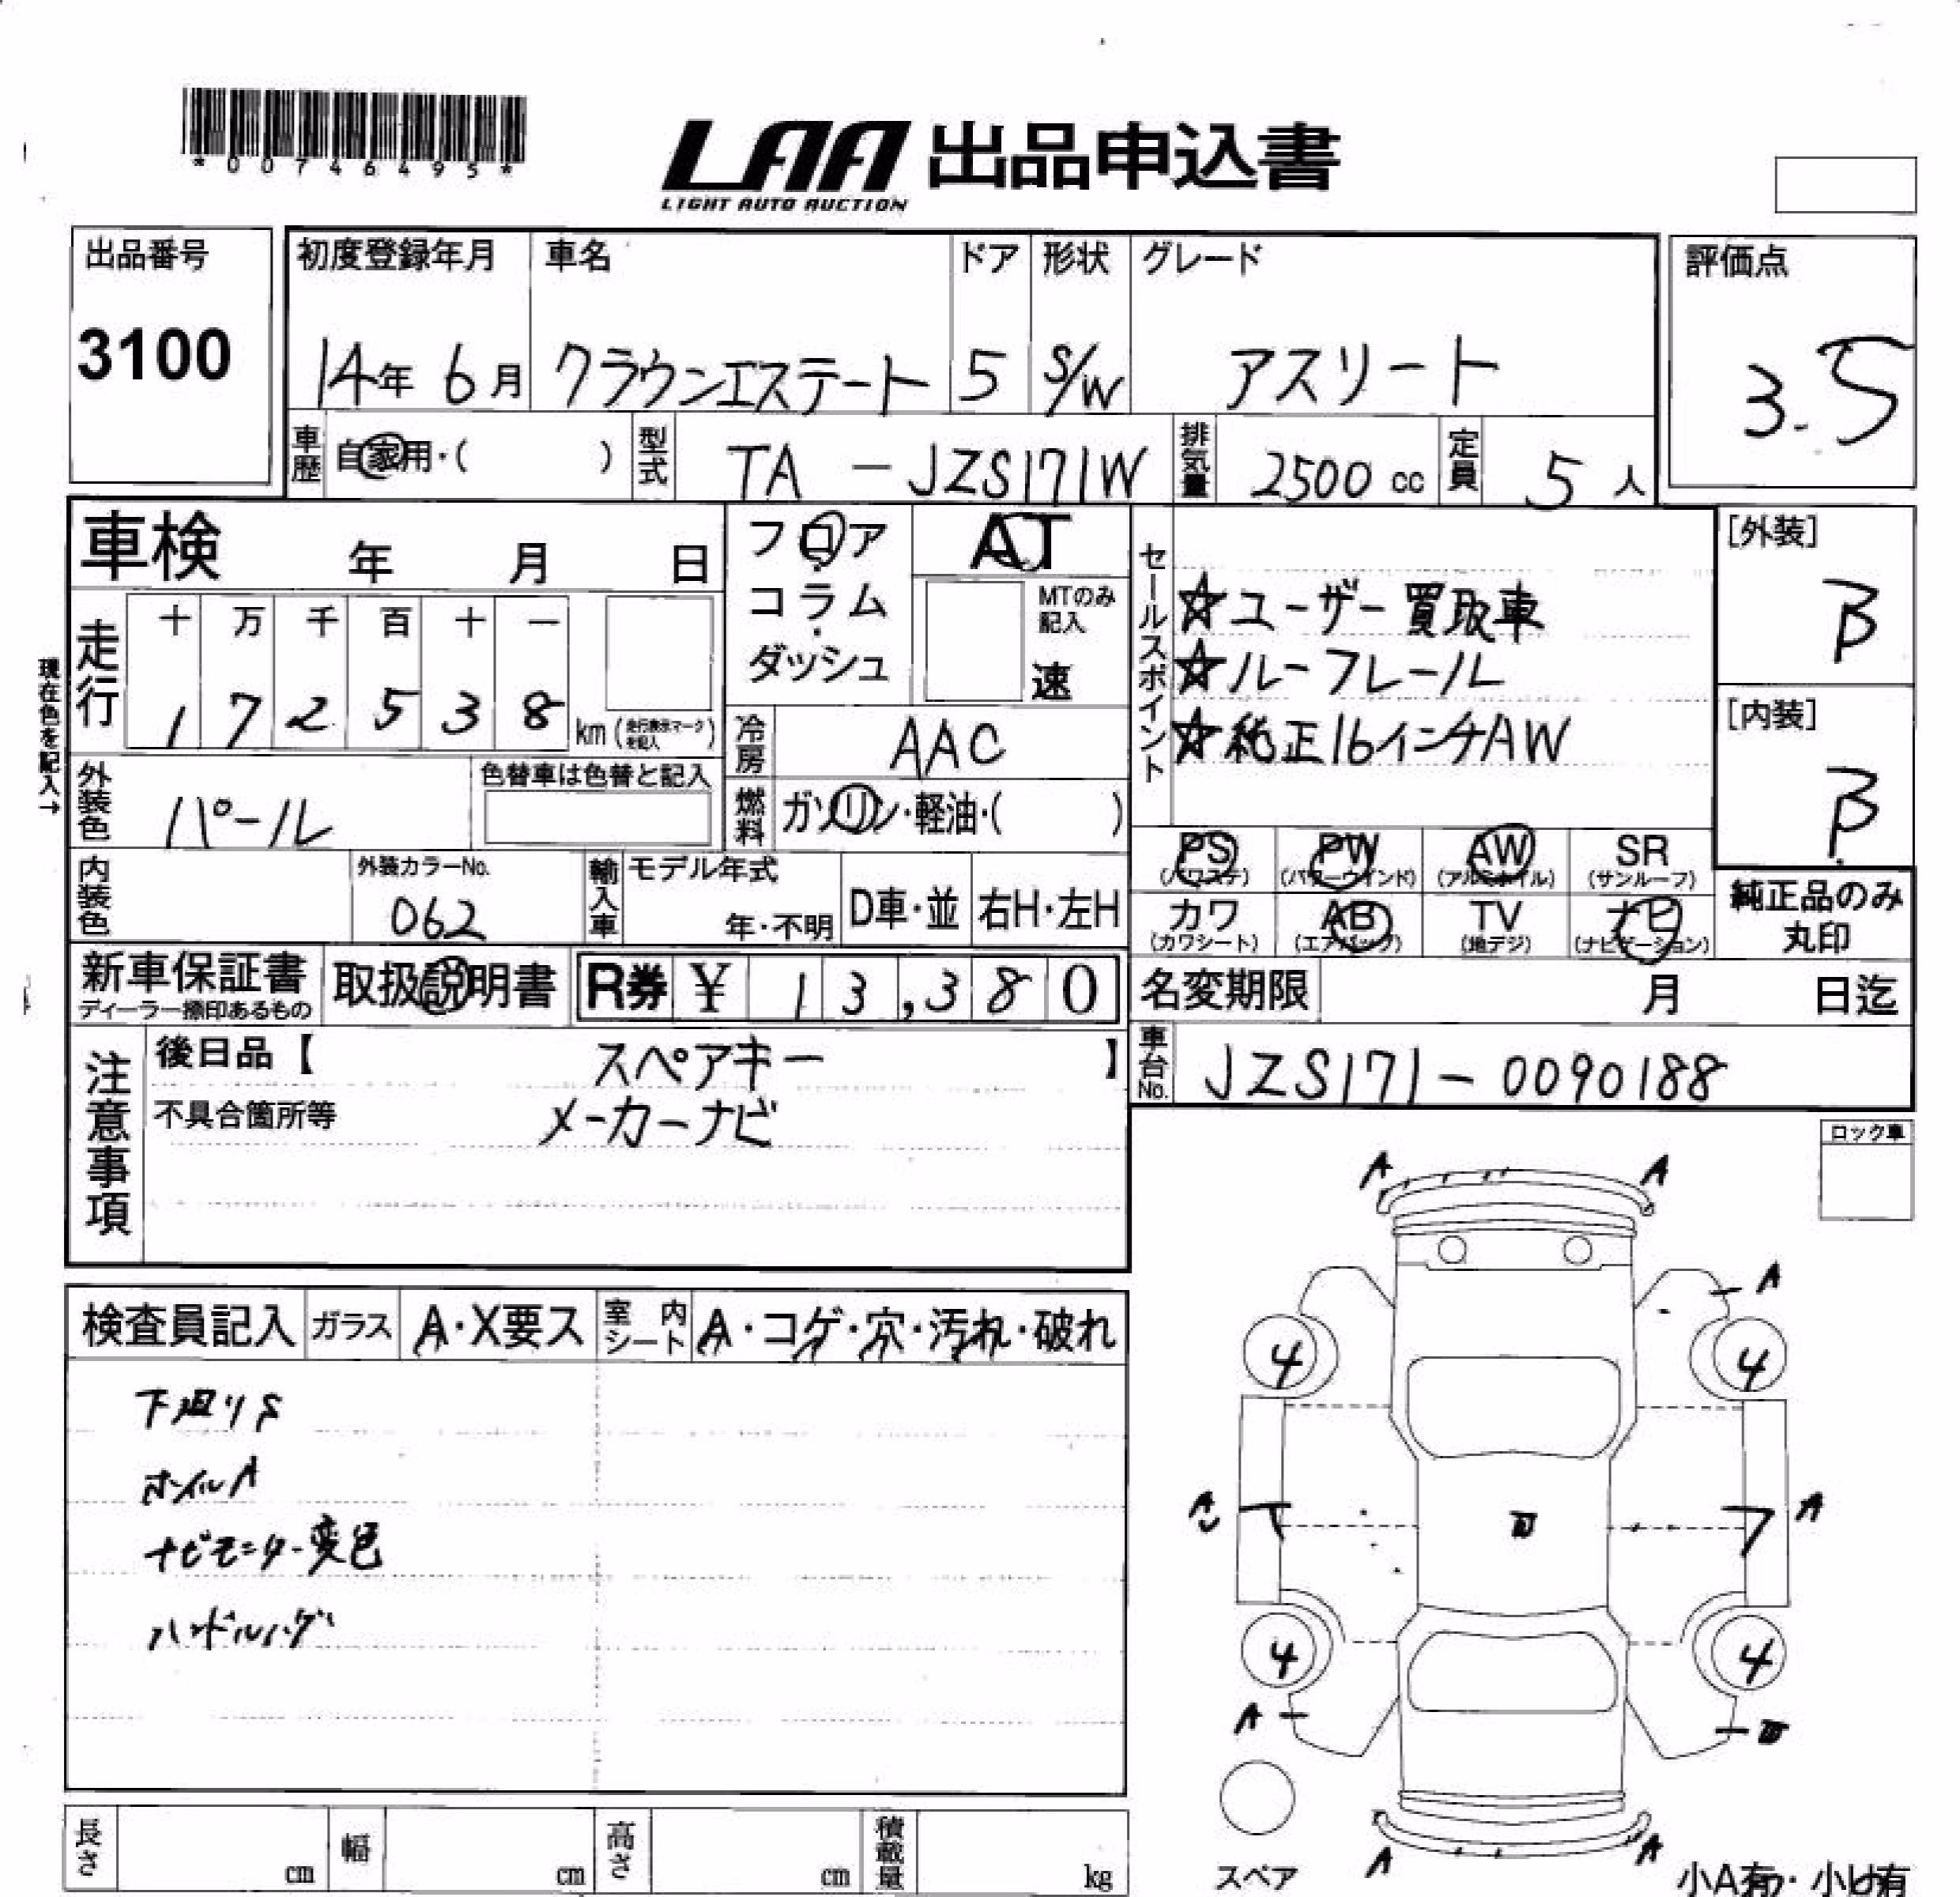 *00746495*
LAA 出品申込書
LIGHT AUTO AUCTION
出品番号
3100
初度登録年月
14年 6月
車名
クラウンエステート
ドア
5
形状
S/W
グレード
アスリート
評価点
3.5
車歴 自家用・( )
型式 TA - JZS171W
排気量 2500 cc
定員 5 人
車検 年 月 日
現在色を記入→
走行
十 万 千 百 十 一
1 7 2 5 3 8 km (走行表示マークを記入)
フロア
・
コラム
・
ダッシュ
AT
MTのみ
記入
速
セールスポイント
☆ユーザー買取車
☆ルーフレール
☆純正16インチAW
[外装]
B
[内装]
B
外装色 パール
色替車は色替と記入
冷房 AAC
燃料 ガソリン・軽油・( )
内装色
外装カラーNo.
062
輸入車
モデル年式
年・不明
D車・並
右H・左H
PS
(パワステ)
PW
(パワーウインド)
AW
(アルミホイル)
SR
(サンルーフ)
カワ
(カワシート)
AB
(エアバック)
TV
(地デジ)
ナビ
(ナビゲーション)
純正品のみ
丸印
新車保証書
ディーラー捺印あるもの
取扱説明書
R券 ¥ 13,380
名変期限 月 日迄
車台No. JZS171-0090188
注意事項
後日品【 スペアキー 】
不具合箇所等 メーカーナビ
ロック車
検査員記入
ガラス A・X要ス
室内シート A・コゲ・穴・汚れ・破れ
下廻りS
ホイルA
ナビモニター変色
ハンドルハゲ
A A
A
4 4
A A
4 4
A
A A
スペア
小A有・小U有
長さ cm
幅 cm
高さ cm
積載量 kg